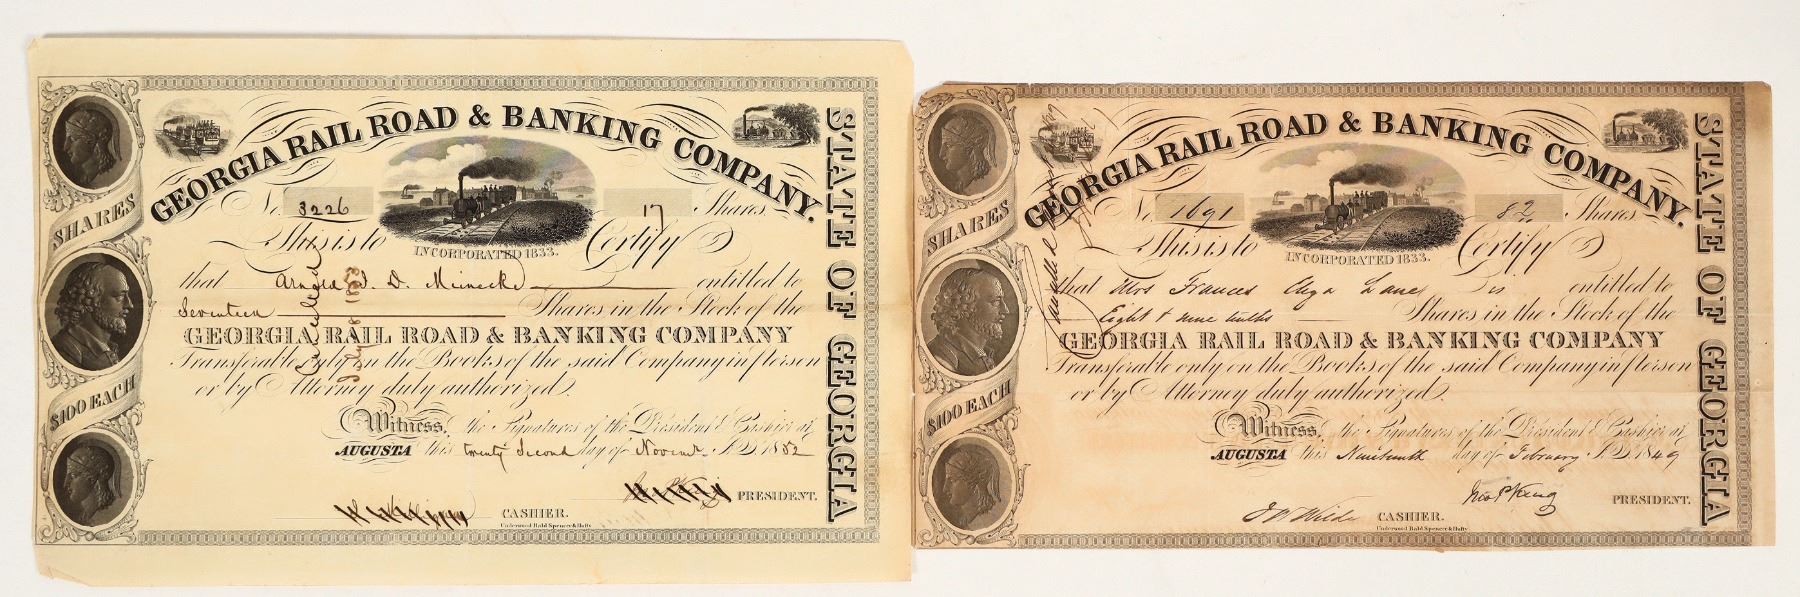 GEORGIA RAIL ROAD & BANKING COMPANY.
No. 3226 17 Shares
INCORPORATED 1833.
This is to Certify
that Arnold J. D. Meinecke entitled to
Seventeen Shares in the Stock of the
GEORGIA RAIL ROAD & BANKING COMPANY
Transferable only on the Books of the said Company in person
or by Attorney duly authorized.
Witness, the Signatures of the President & Cashier at
AUGUSTA this twenty Second day of Novemr A.D. 1852
PRESIDENT.
CASHIER.
Underwood Bald Spencer & Hufty
SHARES
$100 EACH
STATE OF GEORGIA
Cancelled
July 8 1853
GEORGIA RAIL ROAD & BANKING COMPANY.
No. 1691 Shares
INCORPORATED 1833.
This is to Certify
that Mrs Frances Lane is entitled to
Eight & nine tenths Shares in the Stock of the
GEORGIA RAIL ROAD & BANKING COMPANY
Transferable only on the Books of the said Company in person
or by Attorney duly authorized.
Witness, the Signatures of the President & Cashier at
AUGUSTA this Nineteenth day of February A.D. 1849
Jno P King PRESIDENT.
J W Wilde CASHIER.
Underwood Bald Spencer & Hufty
SHARES
$100 EACH
STATE OF GEORGIA